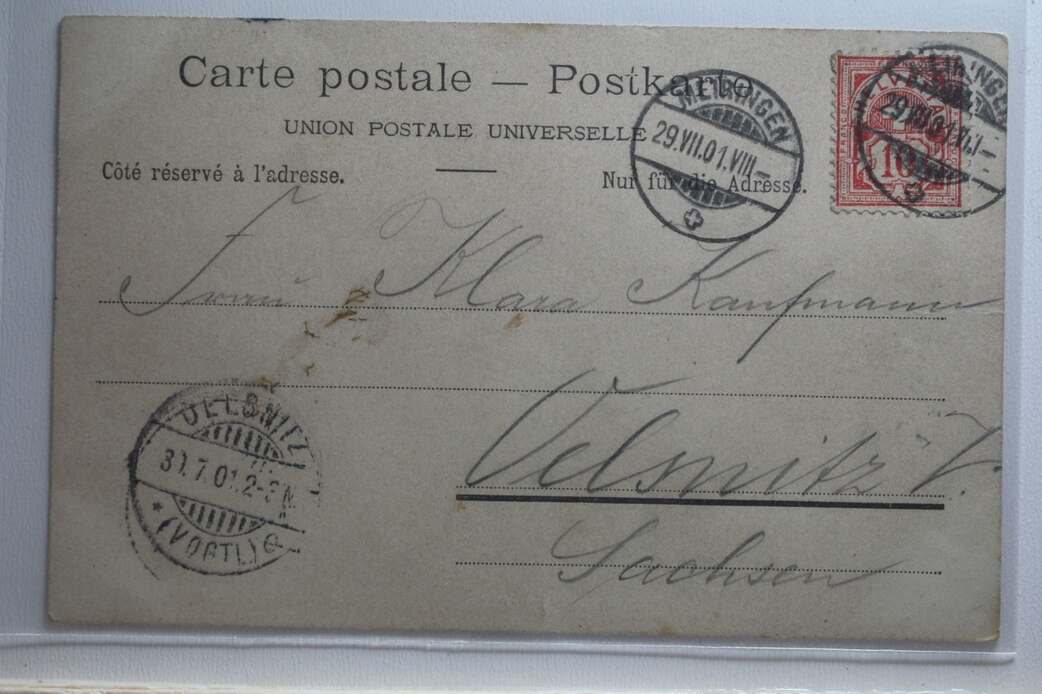 Carte postale — Postkarte
UNION POSTALE UNIVERSELLE
Côté réservé à l'adresse.
Nur für die Adresse.
MEIRINGEN
29.VII.01.VIII–
HELVETIA
10
MEIRINGEN
29.VII.01.VIII–
Frau Klara Kaufmann
Oelsnitz V.
Sachsen
OELSNITZ
30.7.01.2-3N
* (VOGTL) c